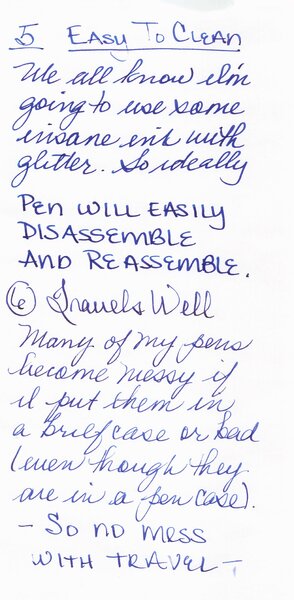 5 Easy To Clean
We all know I'm
going to use some
insane ink with
glitter. So ideally
PEN WILL EASILY
DISASSEMBLE
AND REASSEMBLE.
6 Travels Well
Many of my pens
become messy if
I put them in
a briefcase or bad
(even though they
are in a pen case).
- SO NO MESS
WITH TRAVEL -